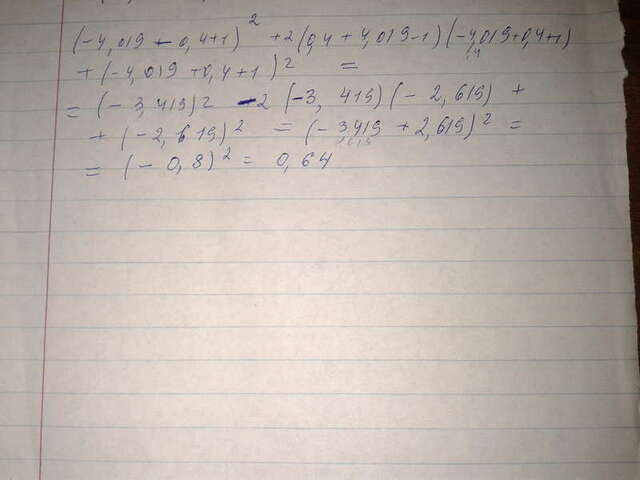 (-4,019 - 0,4+1)² +2(0,4 + 4,019-1)(-4,019+0,4+1)
+(-4,019 +0,4+1)² =
= (-3,419)² -2 (-3,419)(-2,619) +
+ (-2,619)² = (-3,419 + 2,619)² =
= (-0,8)² = 0,64